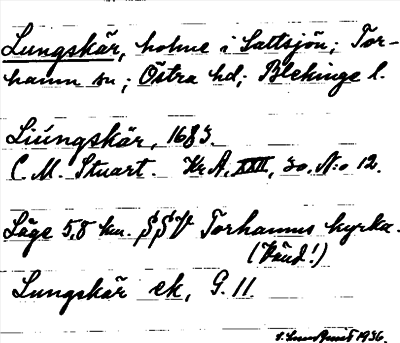 Lungskär, holme i Saltsjön; Tor-
hamn sn; Östra hd; Blekinge l.
Liúngskär, 1683.
C M. Stuart. Kr A. XXII, 30. N:o 12.
Läge 5,8 km. SSV Torhamns kyrka.
(Vänd!)
Lungskär ek, G. 11
1936.